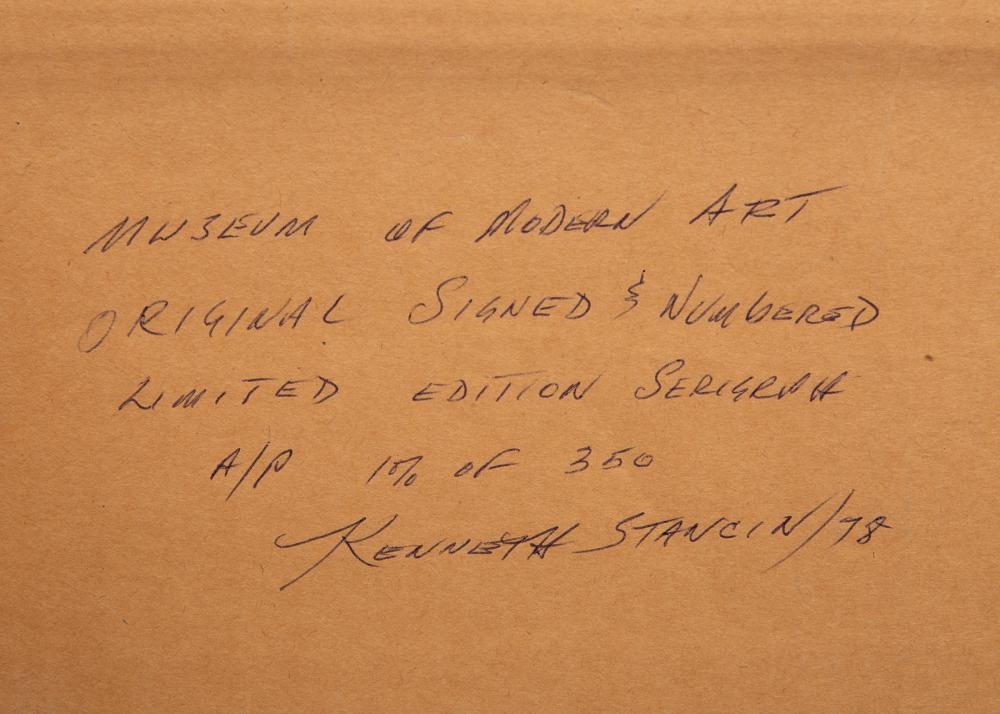 MUSEUM OF MODERN ART
ORIGINAL SIGNED & NUMBERED
LIMITED EDITION SERIGRAH
A/P 10% OF 350
KENNETH STANCIN/78